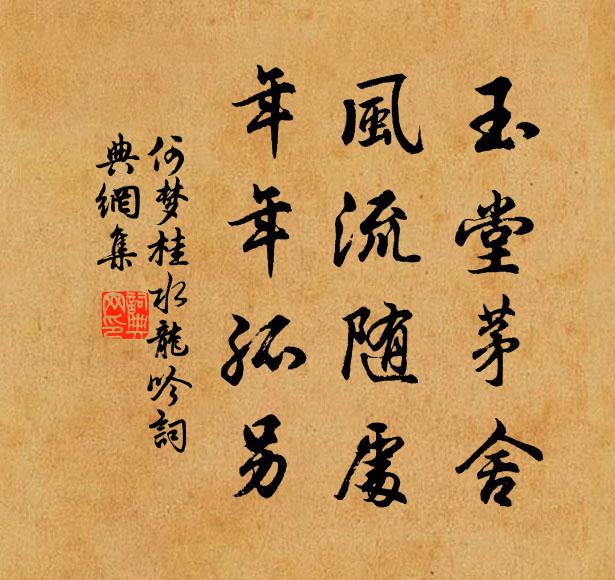 玉堂茅舍
風流随處
年年孤另
何梦桂水龍吟詞
典網集
詞典
网印